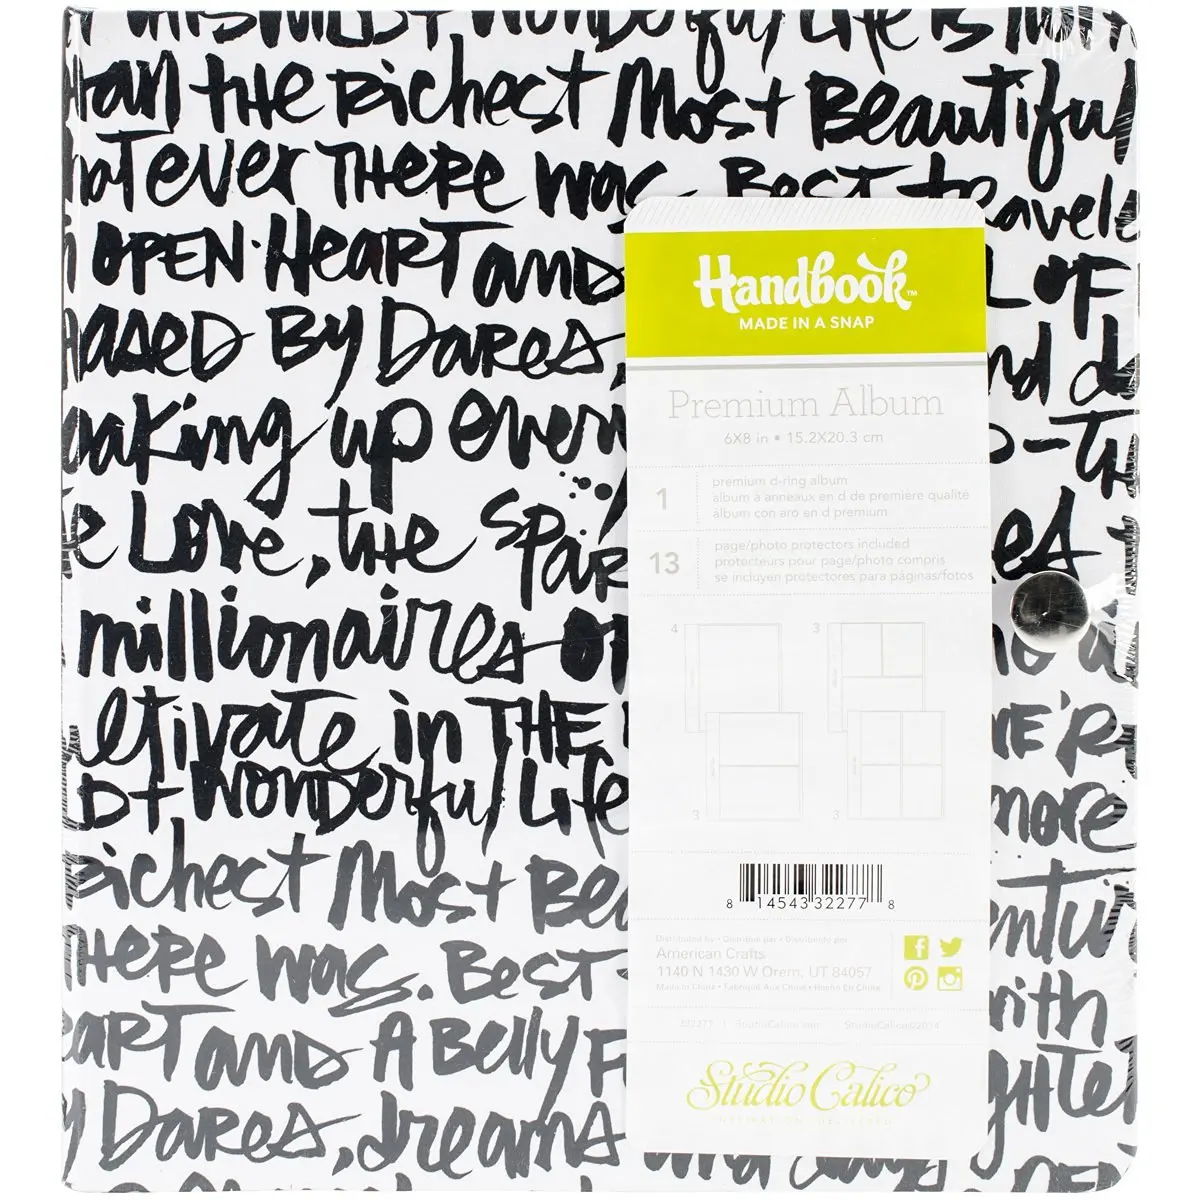 Wonderful Life is
than the Richest Most Beautiful
whatever there was. Best travele
open heart and
L of
ased by Dares,
nd d
making up every
e Love, the spar
millionaires of
ltivate in the
we're
Wonderful Life
more
Richest Most Be
There was. Best
with
eart and a Belly F
y Dares, dreams
Handbook™
MADE IN A SNAP
Premium Album
6X8 in • 15.2X20.3 cm
1
premium d-ring album
album à anneaux en d de première qualité
álbum con aro en d premium
13
page/photo protectors included
protecteurs pour page/photo compris
se incluyen protectores para páginas/fotos
4
3
3
3
8 14543 32277 8
Distributed by • Distribué par • Distribuido por
American Crafts
1140 N 1430 W Orem, UT 84057
Made In China • Fabriqué Aux Chine • Hecho En China
322277 | StudioCalico.com StudioCalico©2014
Studio Calico